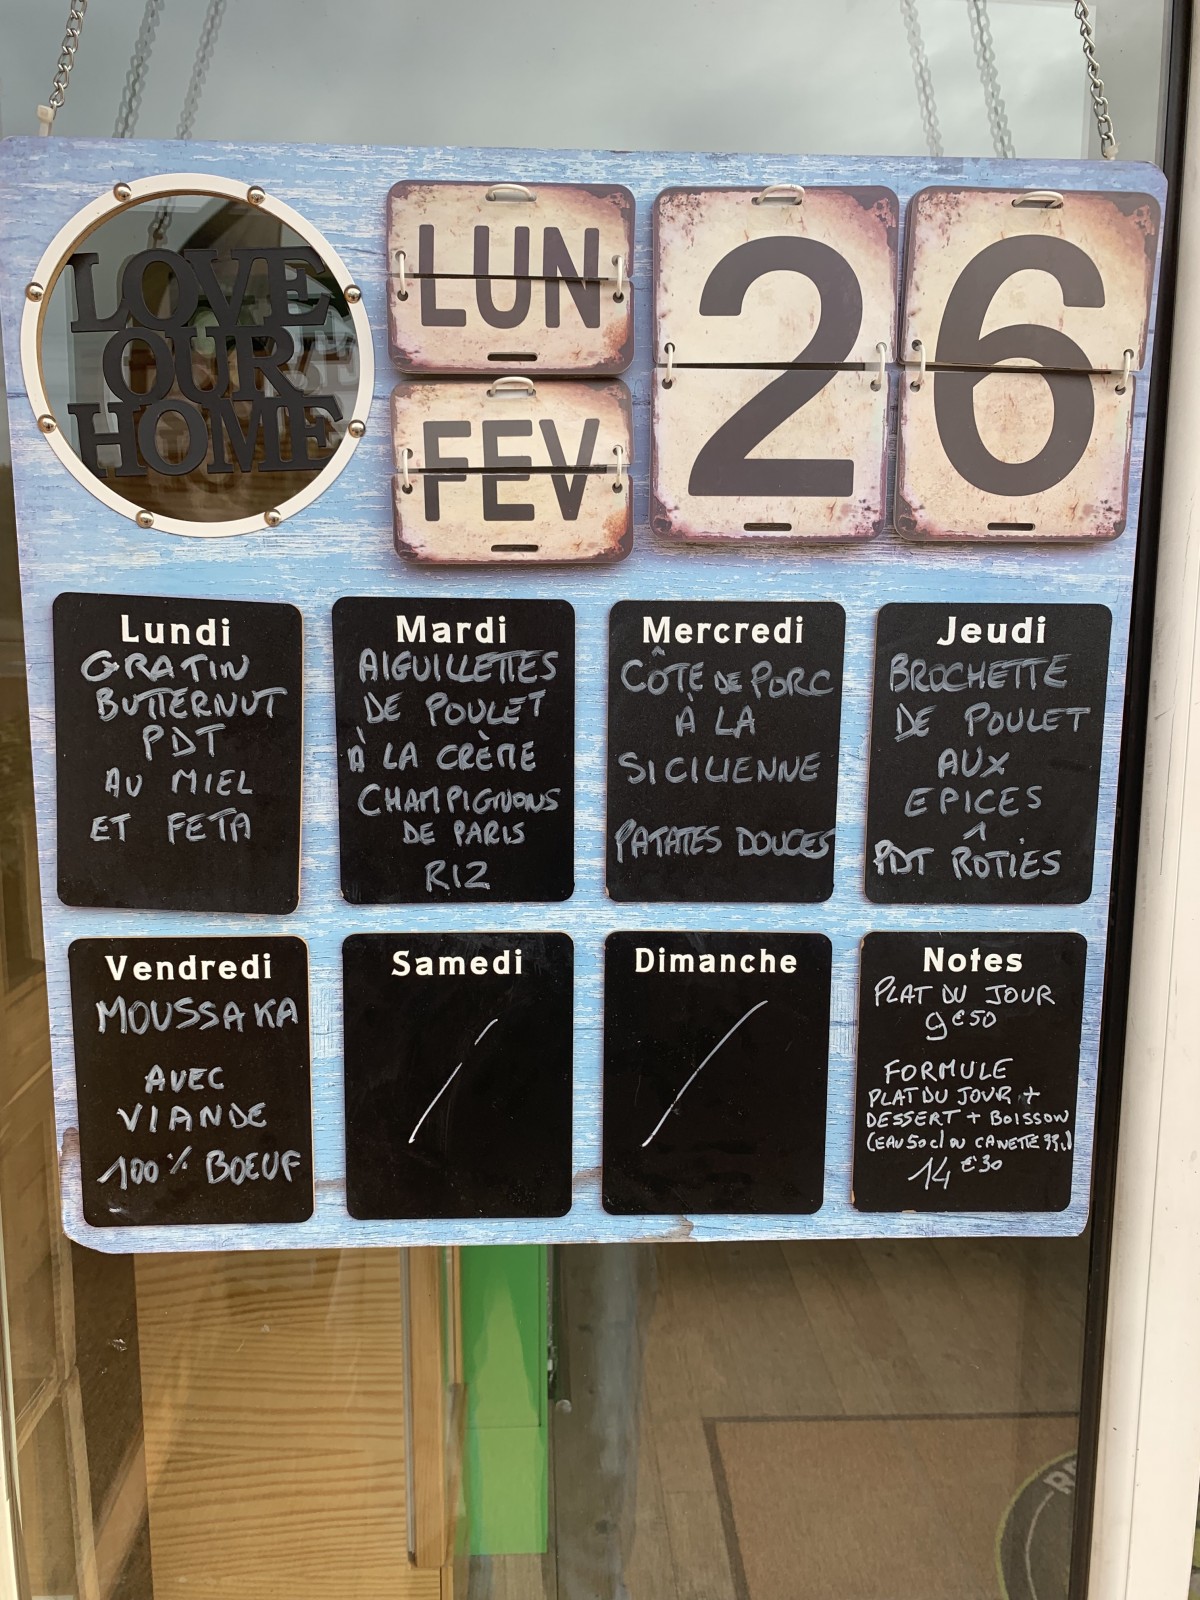 LOVE
OUR
HOME
LUN
FEV
26
Lundi
GRATIN
BUTTERNUT
PDT
AU MIEL
ET FETA
Mardi
AIGUILLETTES
DE POULET
À LA CRÈME
CHAMPIGNONS
DE PARIS
RIZ
Mercredi
CÔTE DE PORC
À LA
SICILIENNE
PATATES DOUCES
Jeudi
BROCHETTE
DE POULET
AUX
EPICES
PDT RÔTIES
Vendredi
MOUSSAKA
AVEC
VIANDE
100% BOEUF
Samedi
/
Dimanche
/
Notes
PLAT DU JOUR
9€50
FORMULE
PLAT DU JOUR +
DESSERT + BOISSON
(EAU 50cl OU CANETTE 33cl)
14€30